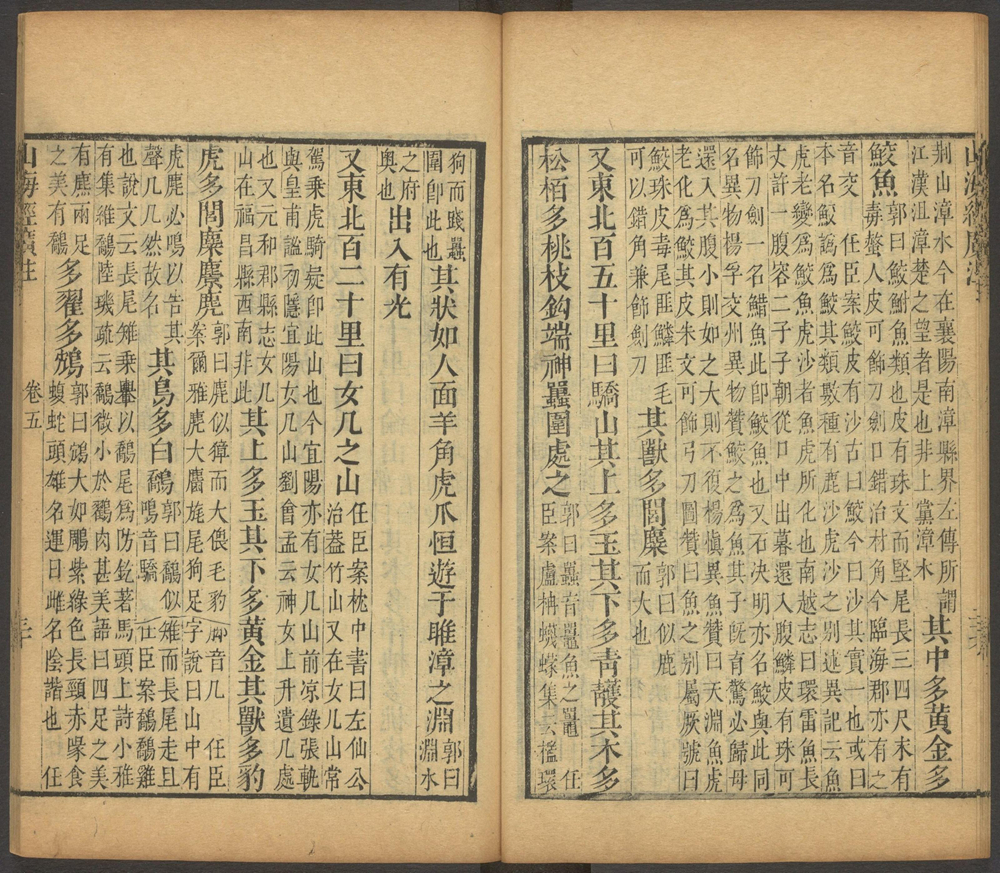 荆山漳水今在襄陽南漳縣界左傳所謂
江漢沮漳楚之望者是也非上黨漳水
其中多黃金多
鮫魚
郭曰鮫鮒魚類也皮有珠文而堅尾長三四尺末有
毒螫人皮可飾刀劍口錯治材角今臨海郡亦有之
音交 任臣案鮫皮有沙古曰鮫今曰沙其實一也或曰
本名鮫譌爲鮫其類數種有鹿沙虎沙之别述異記云魚
虎老變爲鮫魚虎沙者魚虎所化也南越志曰環雷魚長
丈許一腹容二子子朝從口中出暮還入腹鱗皮有珠可
飾刀劍一名䱜魚此卽鮫魚也又石決明亦名鮫與此同
名異物楊孚交州異物贊鮫之爲魚其子旣育驚必歸母
還入其腹小則如之大則不復楊愼異魚贊曰天淵魚虎
老化爲鮫其皮朱文可飾弓刀圖贊曰魚之别屬厥號曰
鮫珠皮毒尾匪鱗匪毛
可以錯角兼飾劍刀
其獸多閭麋
郭曰似鹿
而大也
又東北百五十里曰驕山其上多玉其下多青雘其木多
松柏多桃枝鈎端神𧕦圍處之
郭曰𧕦音鼉魚之鼉 任
臣案盧柟蠛蠓集云檻環
狗而踐𧕦
圍卽此也
其狀如人面羊角虎爪恒遊于睢漳之淵
郭曰
淵水
之府
奥也
出入有光
又東北百二十里曰女几之山
任臣案枕中書曰左仙公
治葢竹山又在女几山常
駕乗虎騎疑卽此山也今宜陽亦有女几山前凉錄張軌
與皇甫謐初隱宜陽女几山劉會孟云神女上升遺几處
也又元和郡縣志女几
山在福昌縣西南非此
其上多玉其下多黃金其獸多豹
虎多閭麋麖麂
郭曰麂似獐而大偎毛豹脚音几 任臣
案爾雅麂大麕旄尾狗足字說曰山中有
虎麂必鳴以告其
聲几几然故名
其鳥多白鷮
郭曰鷮似雉而長尾走且
鳴音驕 任臣案鷮鷮雞
也說文云長尾雉乗轝以鷮尾爲防釳著馬頭上詩小雅
有集維鷮陸璣疏云鷮微小於翟肉甚美語曰四足之美
有麃兩足
之美有鷮
多翟多鴆
郭曰鴆大如鵰紫綠色長頸赤喙食
蝮蛇頭雄名運日雌名隂諧也 任
山海經廣注
卷五